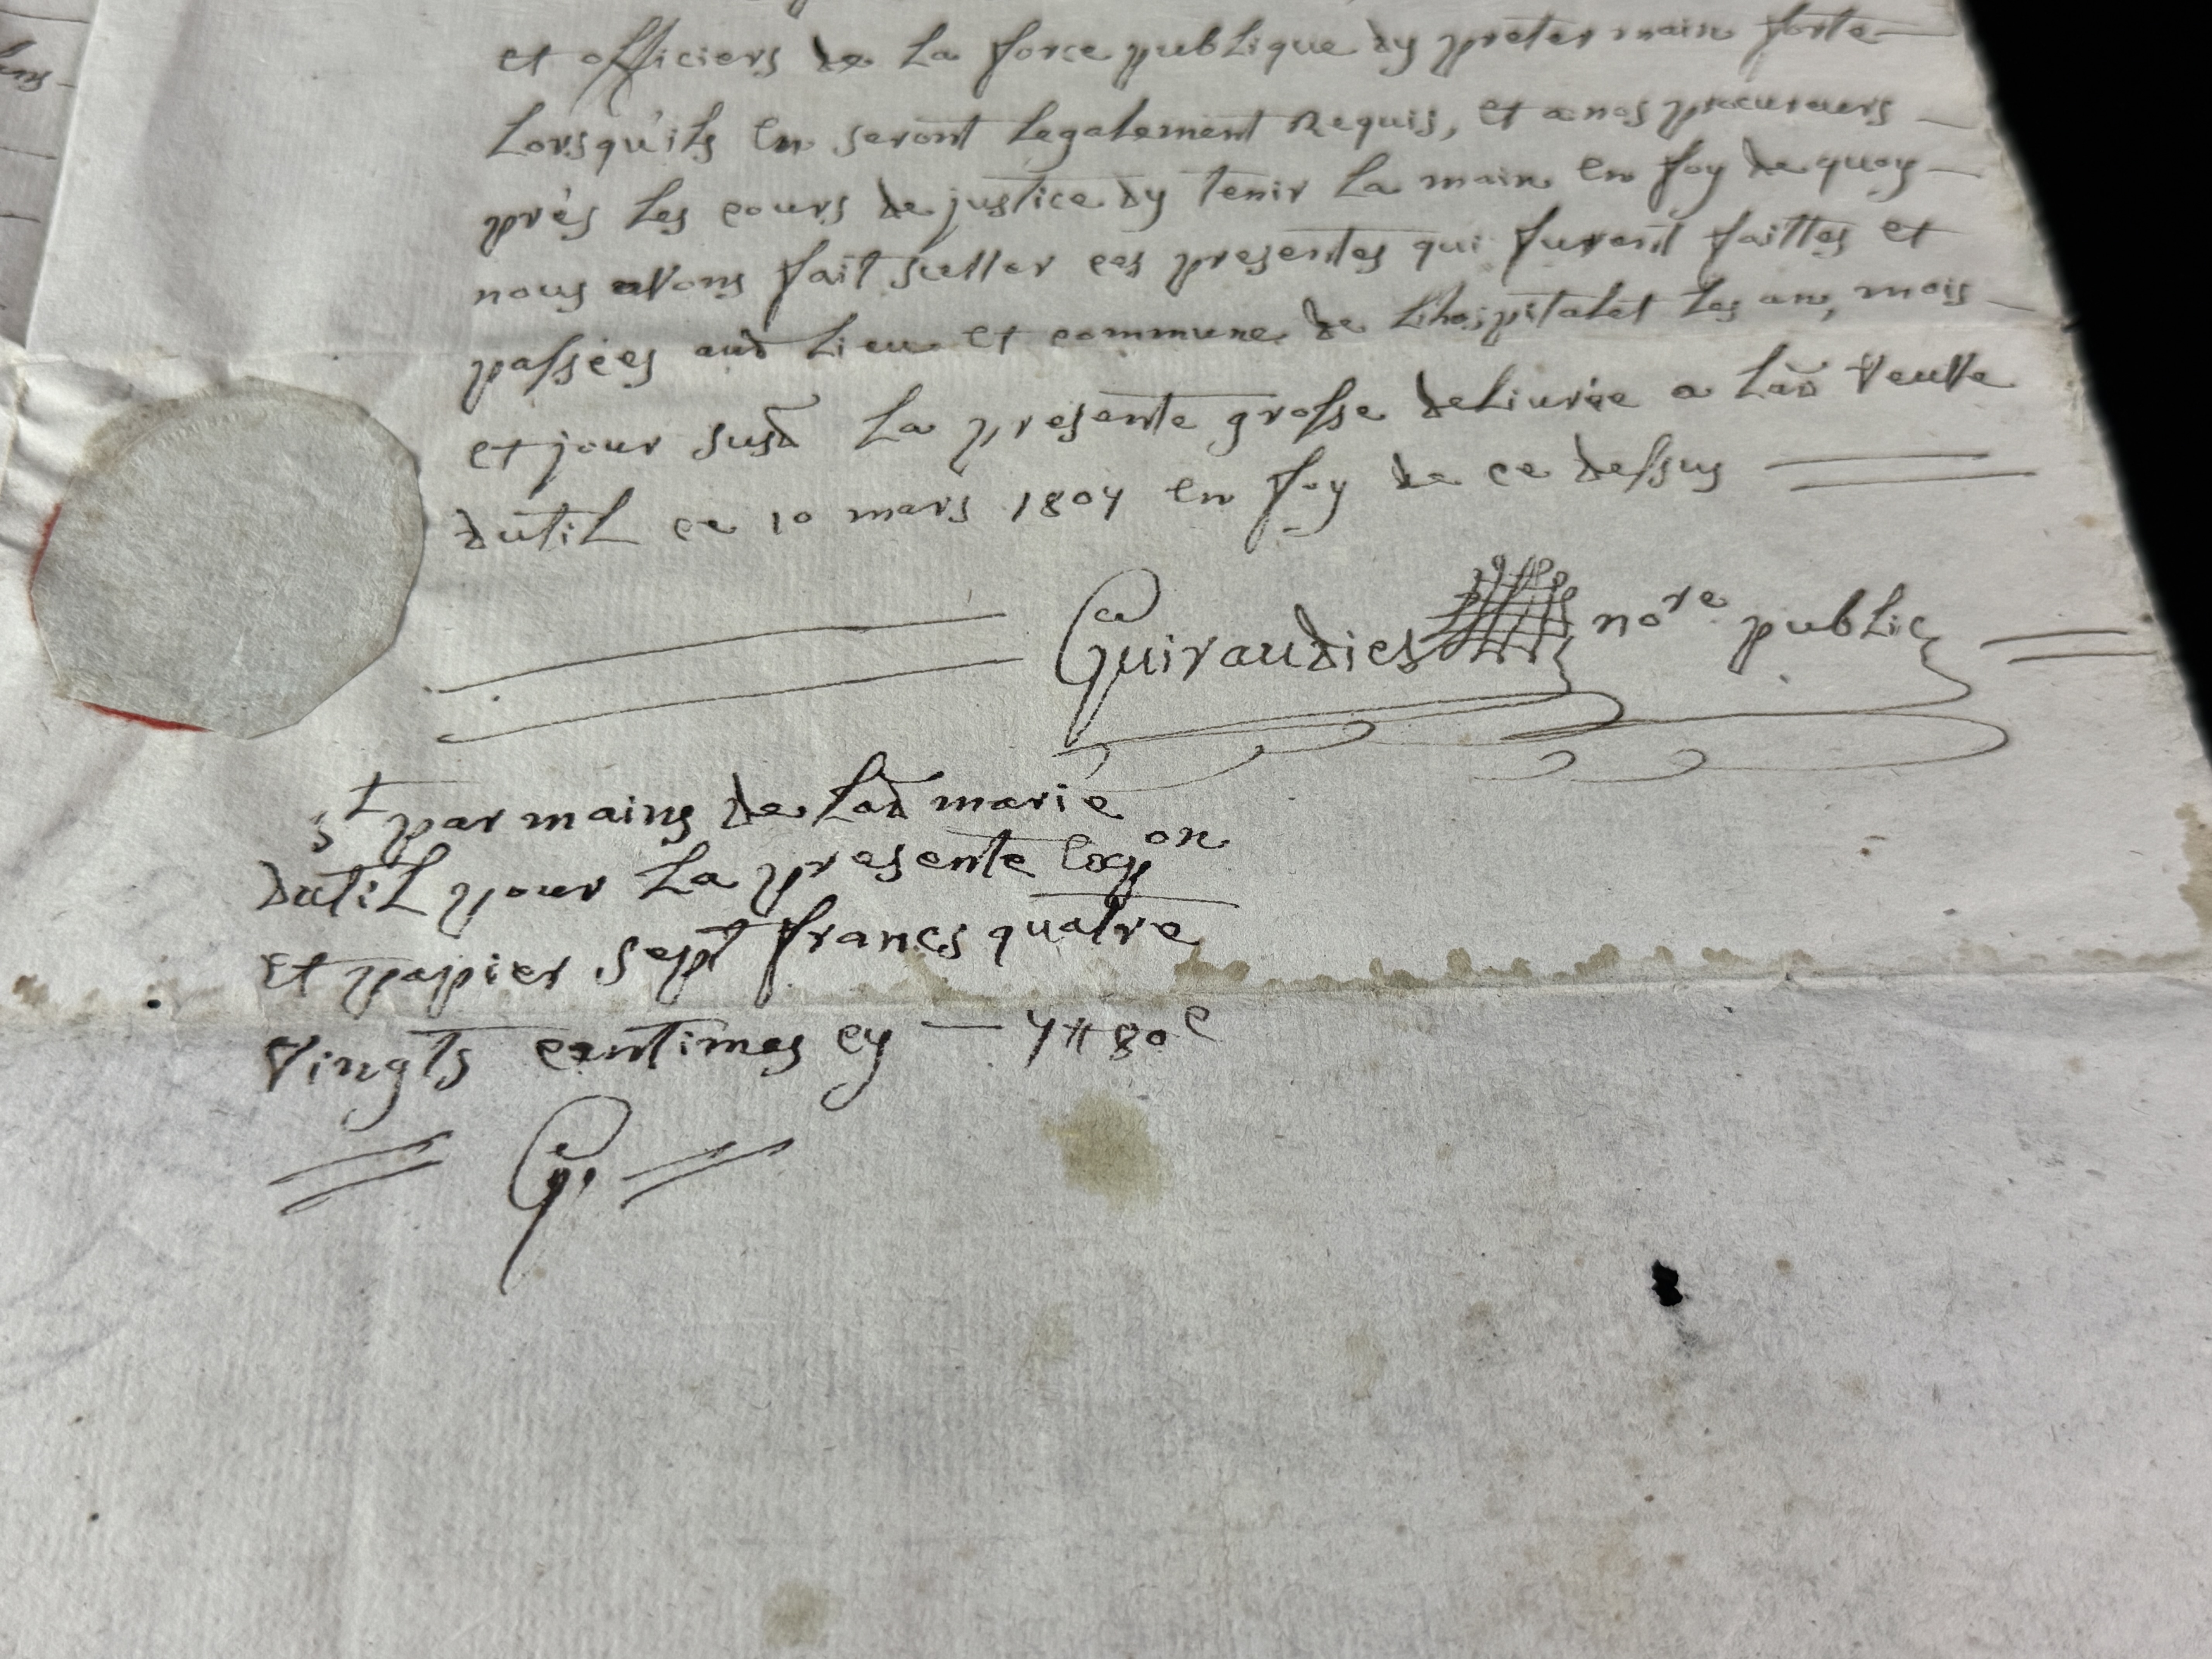 et officiers de la force publique dy preter main forte
Lorsqu'ils en seront legalement Requis, et a nos procureurs
près les cours de justice dy tenir la main en foy de quoy
nous avons fait sceller ces presentes qui furent faittes et
passées aud Lieu et commune de Lhospitalet les an, mois
et jour susd La presente grosse deliurée a Lad veuve
dutil ce 10 mars 1807 en foy de ce dessus
Guiraudies no.re public
par mains de Lad marie
dutil pour La presente Exp.on
et papier sept francs quatre
vingts centimes cy — 7# 80c
G.